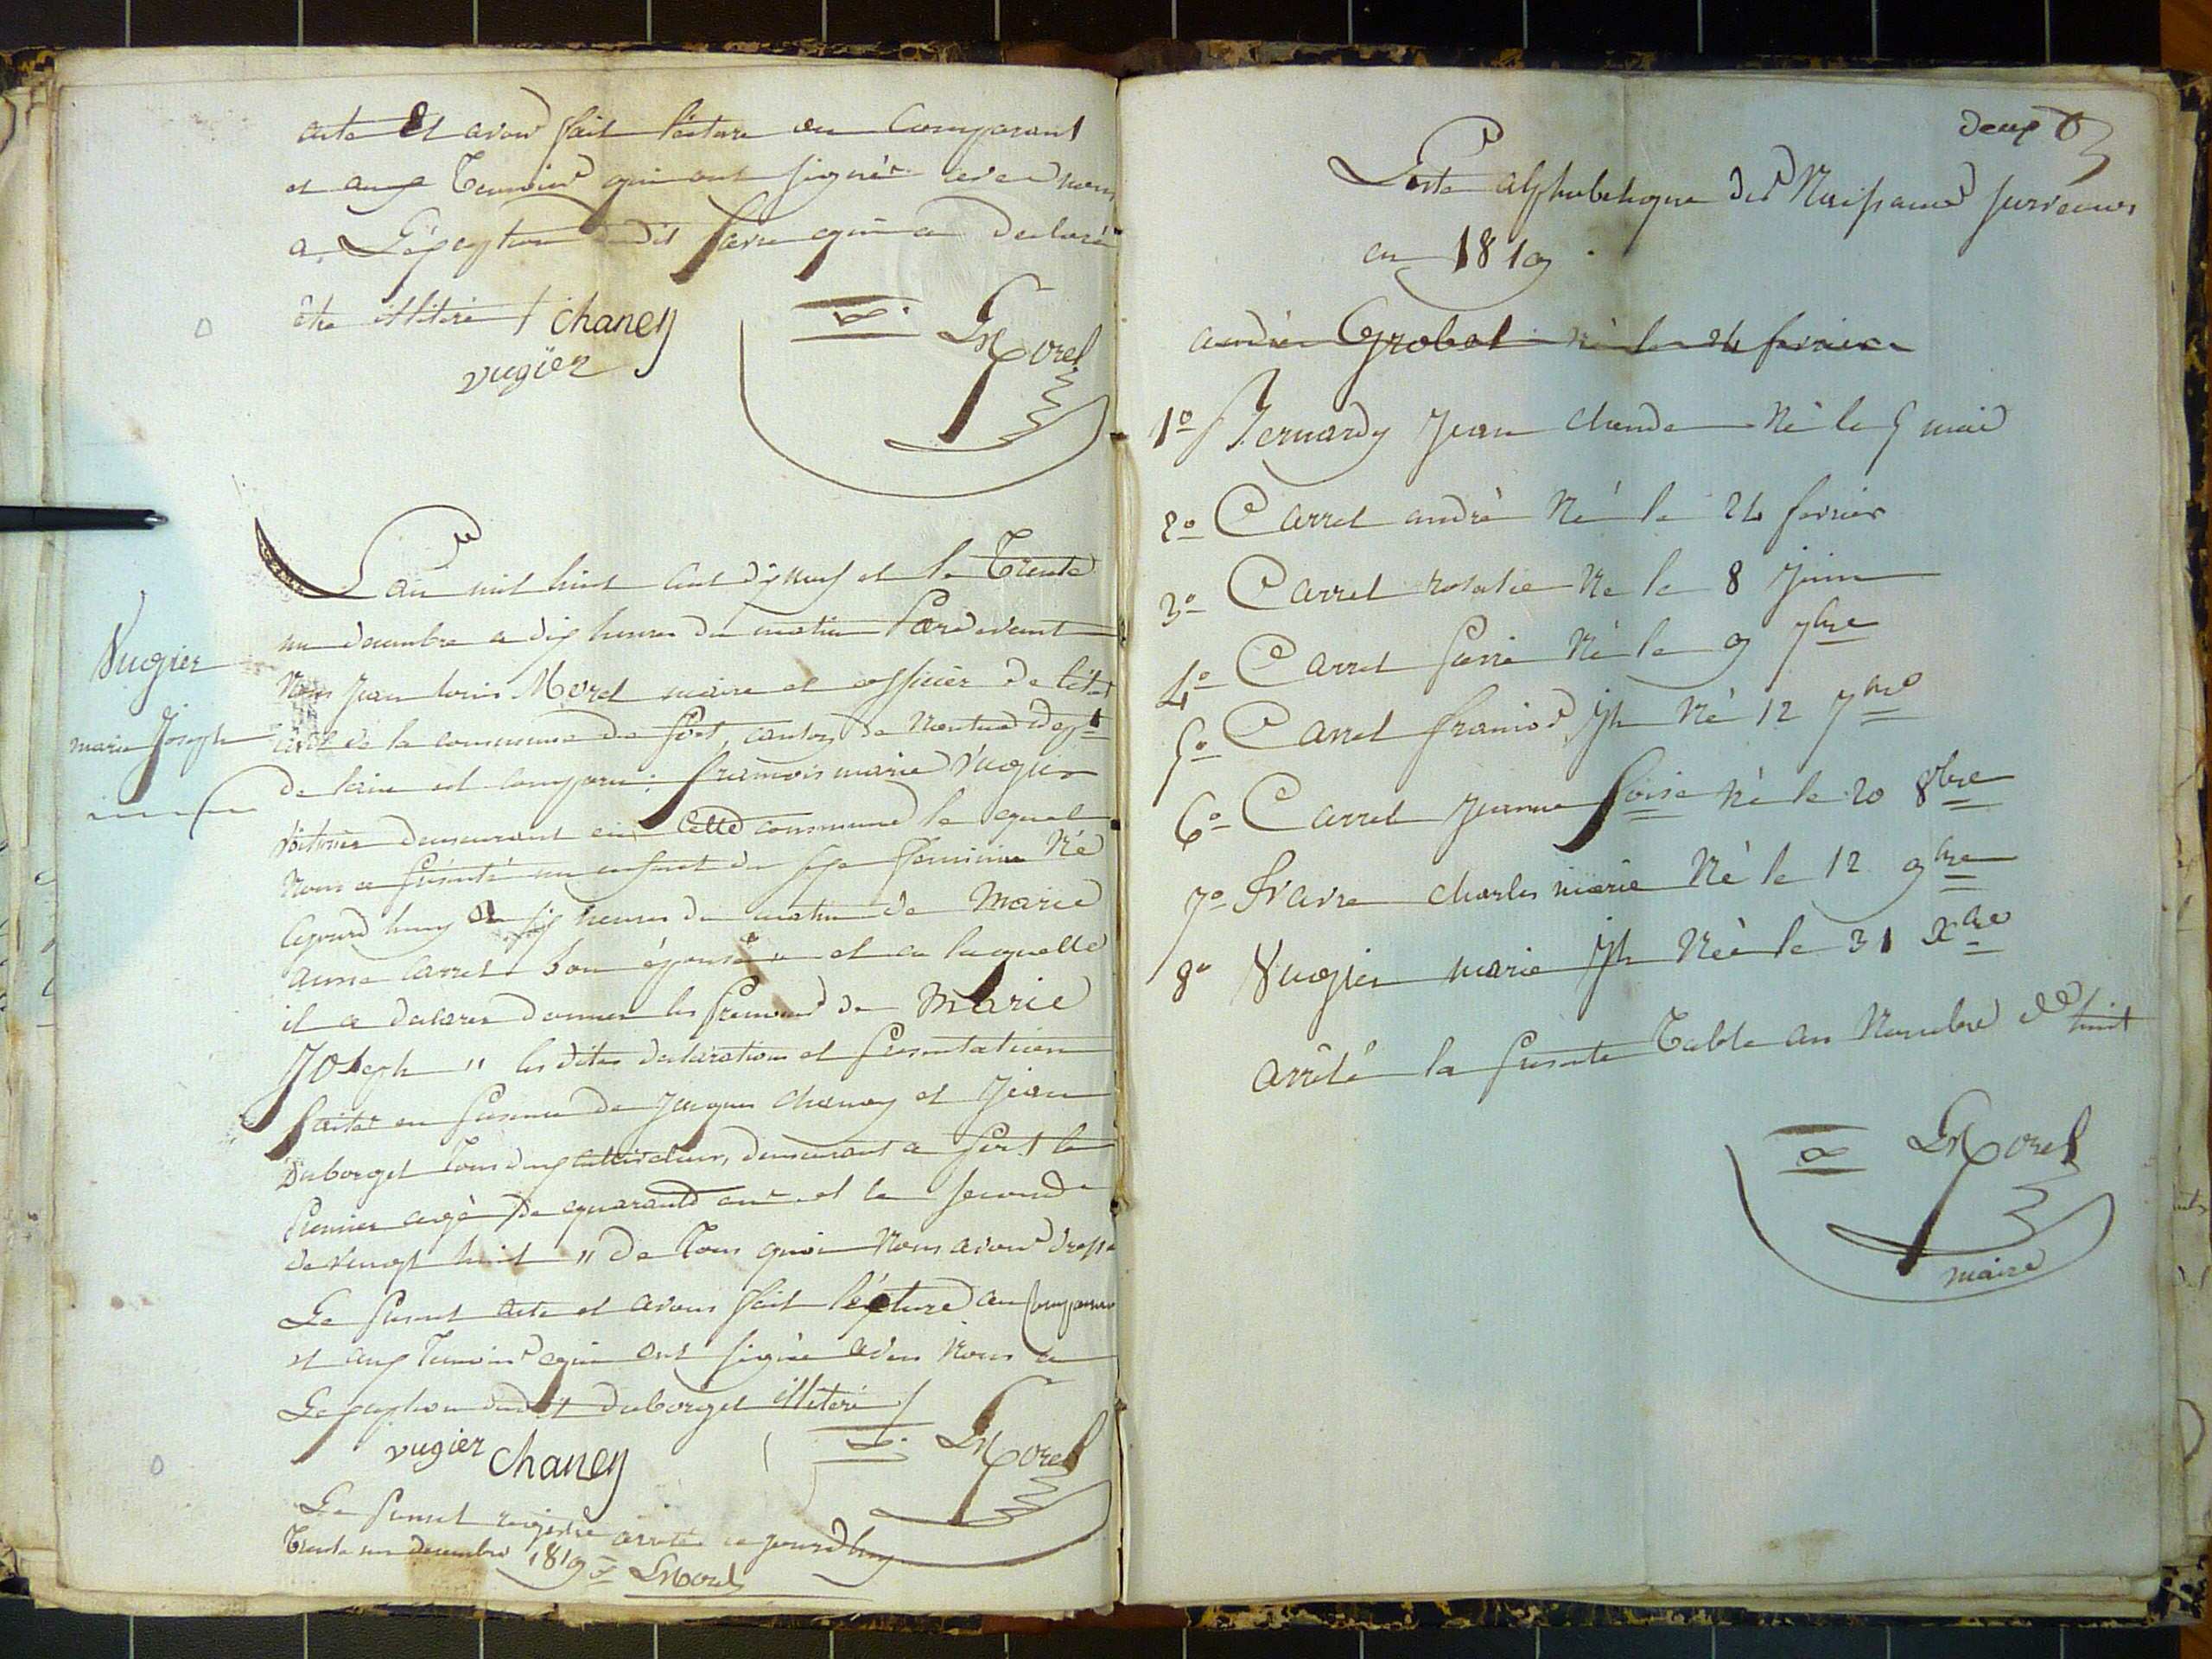 acte Et avons fait lécture au Comparant
et aux Temoins qui ont signés avec nous
a L'éxeption dudit favre qui a Declaré
étre illiteré / chaney
vugier
Lx Morel
L'an mil huit cent dix neuf et le Trente
un decembre a dix heures du matin Pardevant
Vugier
marie Joseph
Nous Jean louis Morel maire et officier de l'état
civil de la commune de Port, canton de Nantua dept
de l'ain est comparu: francois marie Vugier
Voiturier demeurant en Cette commune le quel
Nous a présenté un enfant du sexe feminin Né
cejourd'huy a six heures du matin de Marie
anne Carrel son épouse " et a laquelle
il a declarer donner les prenoms de Marie
JOseph " les dites declaration et presentation
faites en presence de Jacques Chaney et Jean
Duborget tous deux cultivateurs, demeurant a Port le
Premier agé de quarante ans et le second
de vingt huit " De Tous quoi Nous avons dressé
Le present acte et avons fait lécture au Comparant
et aux Temoins qui ont signée avec Nous a
L'exeption dudit Duborget illiteré /
vugier chaney
Lx Morel
Le present registre arreté cejourd'huy
Trente un decembre 1819 Lx Morel
deux
Liste alphabetique des Naissances survenues
en 1819
andré Grobal né le 24 fevrier
1º Bernardy Jean claude Né le 5 mai
2º Carrel andré Né le 24 fevrier
3º Carrel rosalie Né le 8 Juin
4º Carrel Pierre Né le 9 7bre
5º Carrel francois Jh Né 12 7bre
6º Carrel Jeanne foise Né le 20 8bre
7º Favre charles marie Né le 12 9bre
8º Vugier marie Jh Née le 31 Xbre
Arrêté la presente Table au Nombre de huit
Lx Morel
maire